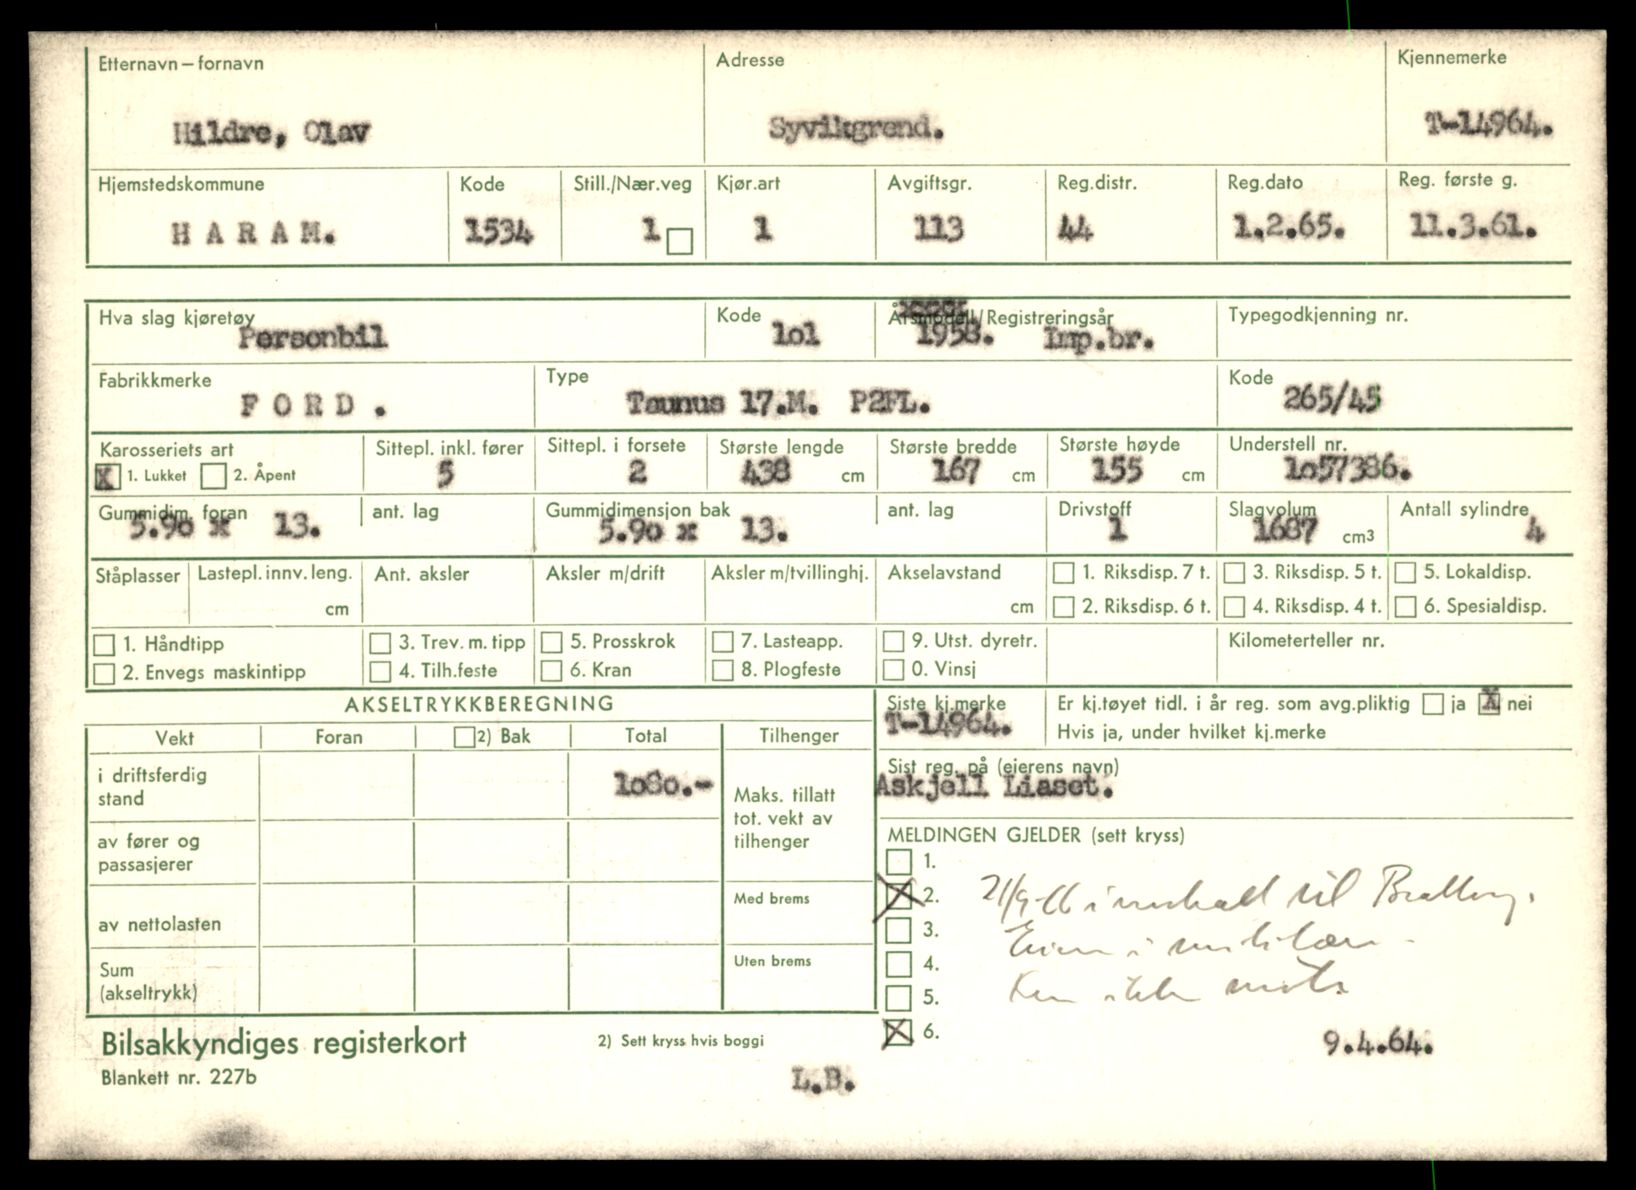 Etternavn – fornavn
Adresse
Kjennemerke
Hildre, Olav
Syvikgrend.
T-14964.
Hjemstedskommune
Kode
Still./Nær.veg
Kjør.art
Avgiftsgr.
Reg.distr.
Reg.dato
Reg. første g.
H A R A M.
1534
1
1
113
44
1.2.65.
11.3.61.
Hva slag kjøretøy
Kode
Årsmodell/Registreringsår
Typegodkjenning nr.
Personbil
1o1
1958.
Imp.br.
Fabrikkmerke
Type
Kode
F O R D .
Taunus 17.M. P2FL.
265/45
Karosseriets art
Sittepl. inkl. fører
Sittepl. i forsete
Største lengde
Største bredde
Største høyde
Understell nr.
X 1. Lukket
2. Åpent
5
2
438 cm
167 cm
155 cm
1o57386.
Gummidim. foran
ant. lag
Gummidimensjon bak
ant. lag
Drivstoff
Slagvolum
Antall sylindre
5.9o x 13.
5.9o x 13.
1
1687 cm3
4
Ståplasser
Lastepl. innv. leng.
cm
Ant. aksler
Aksler m/drift
Aksler m/tvillinghj.
Akselavstand
cm
1. Riksdisp. 7 t.
3. Riksdisp. 5 t.
5. Lokaldisp.
2. Riksdisp. 6 t.
4. Riksdisp. 4 t.
6. Spesialdisp.
1. Håndtipp
3. Trev. m. tipp
5. Prosskrok
7. Lasteapp.
9. Utst. dyretr.
Kilometerteller nr.
2. Envegs maskintipp
4. Tilh.feste
6. Kran
8. Plogfeste
0. Vinsj
AKSELTRYKKBEREGNING
Vekt
Foran
2) Bak
Total
Tilhenger
i driftsferdig
stand
1o8o.-
Maks. tillatt
tot. vekt av
tilhenger
av fører og
passasjerer
av nettolasten
Med brems
Sum
(akseltrykk)
Uten brems
Siste kj.merke
T-14964.
Er kj.tøyet tidl. i år reg. som avg.pliktig ja X nei
Hvis ja, under hvilket kj.merke
Sist reg. på (eierens navn)
Askjell Liaset.
MELDINGEN GJELDER (sett kryss)
1.
X 2.
3.
4.
5.
X 6.
21/9-66 til
i
ikke
9.4.64.
Bilsakkyndiges registerkort
2) Sett kryss hvis boggi
Blankett nr. 227b
L.B.